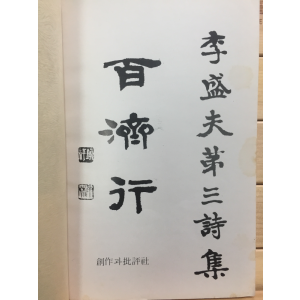 李盛夫第三詩集
百濟行
創作과批評社